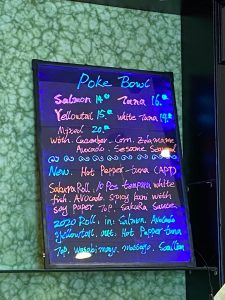 Poke Bowl
Salmon 14.⁰⁰ Tuna 16.⁰⁰
Yellowtail 15.⁰⁰ White Tuna 14.⁰⁰
Mixed 20.⁰⁰
with. Cucumber. Corn. Edamame
Avocado. Sesame Seaweed
New. Hot Pepper-tuna (APT)
Sakura Roll. 10 Pcs tempura white
fish. Avocado. Spicy kani with
Soy paper Top. Sakura Sauce
2020 Roll, in: Salmon, Avocado
Yellowtail, out: Hot Pepper-tuna
Top, Wasabi mayo. massago.